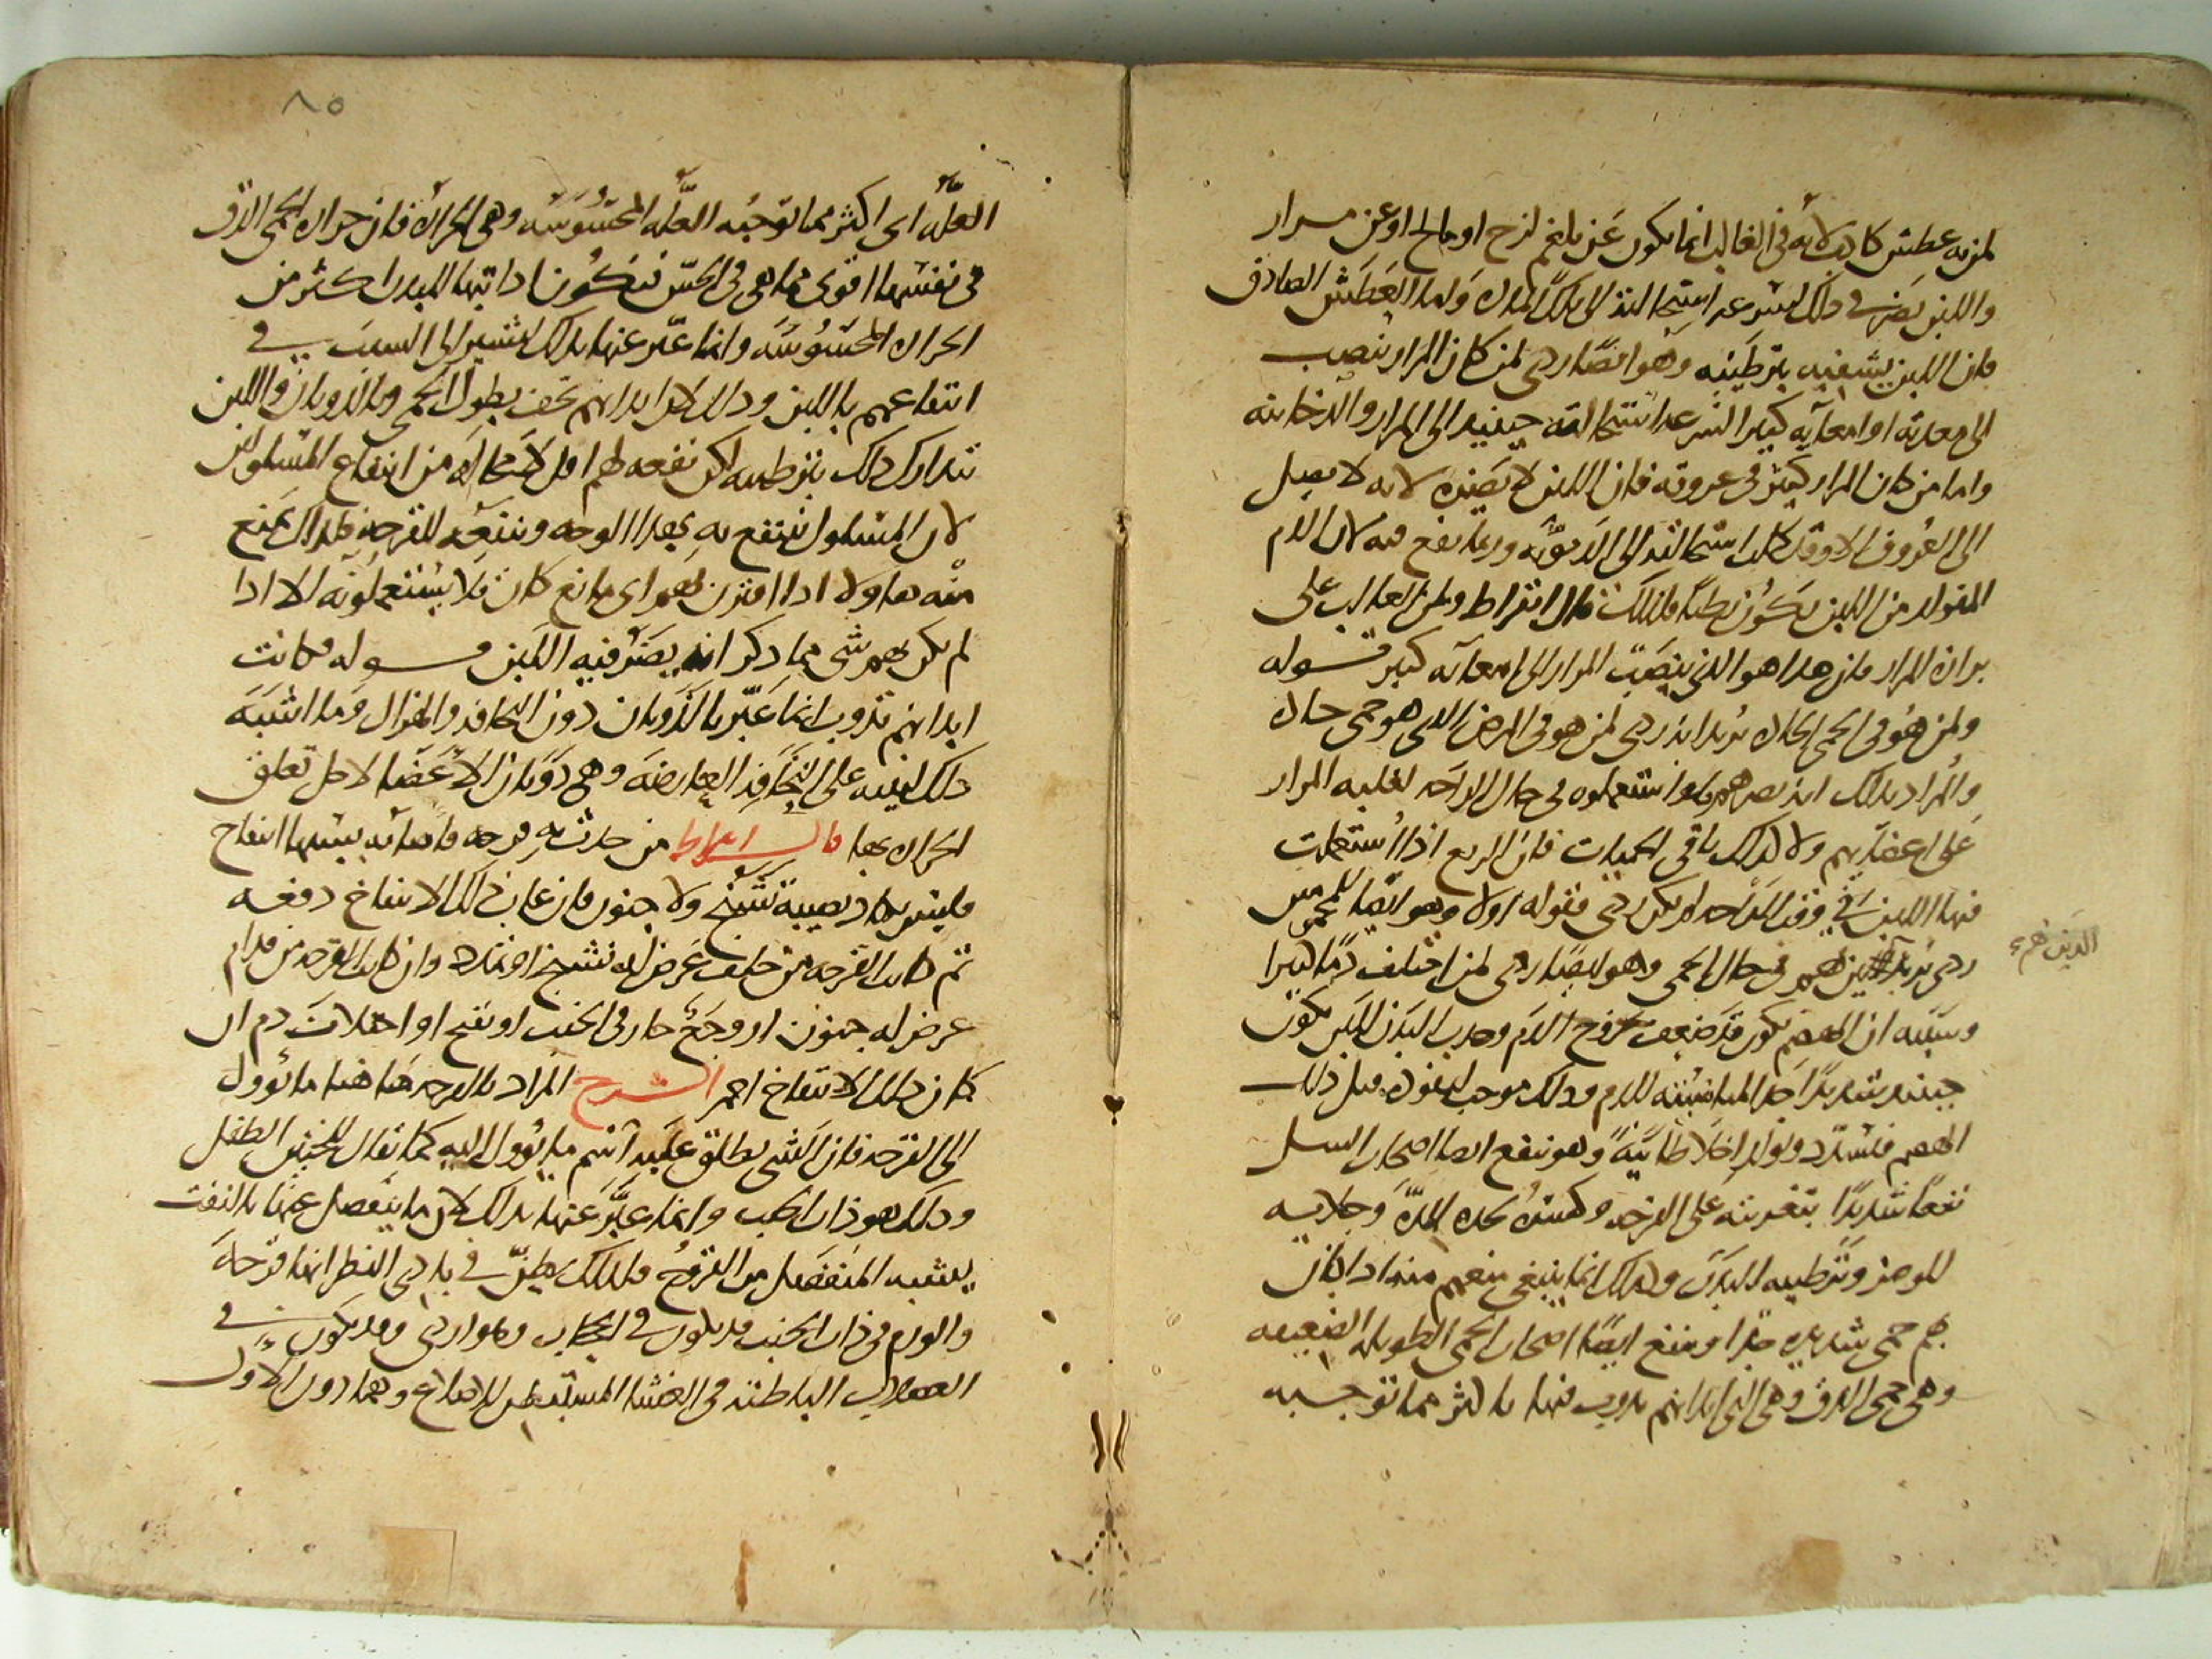 لمن به عطش كاذب لانه في الغالب انما يكون عن بلغم لزج او مالح او عن مرار
واللبن يضر في ذلك لسرعه استحالته الى تلك المواد واما العطش الصادق
فان اللبن يشفيه بترطيبه وهو ايضا ردي لمن كان المرار ينصب
الى معدته او امعايه كثيرا لسرعه استحالته حينيد الى المرار والدخانيه
واما من كان المرار كثير في عروقه فان اللبن لا يضره لانه لا يصل
الى العروق الا وقد كملت استحالته الى الدمويه وربما نفع فيه لان الدم
المتولد من اللبن يكون رطبا فلذلك قال ابقراط ولمن الغالب على
برازه المرار فان هذا هو الذي ينصب المرار الى امعايه كثير قوله
ولمن هو في الحمى الحاده يريد انه ردي لمن هو في المرض الذي هو حمى حاده
والمراد بذلك انه يضرهم ولو استعملوه في حال الراحه لغلبه المرار
على اعضايهم ولا كذلك باقي الحميات فان الربع اذا استعملت
فيها اللبن في وقت الراحه لم يكن ردي فقوله اولا وهو ايضا للمحمومين
ردي يريد الذين هم في حال الحمى وهو ايضا ردي لمن اختلف دما كثيرا
الذين هم
وسببه ان الهضم يكون قد ضعف بخروج الدم وجذب البدن للبن يكون
حينيد شديدا جدا لمناسبته للدم وذلك موجب لنفوذه قبل ذلك
الهضم فيسدد ويولد اخلاطا نية وهو ينفع ايضا اصحاب السل
نفعا شديدا بتغريته على القرحه وكسره لحده المده وجلايه
للوضر وترطيبه للبدن ولذلك انما ينبغي منعهم منه اذا كان
بهم حمى شديده جدا وينفع ايضا اصحاب الحمى الطويله الضعيفه
وهي حمى الدق وهي التي ابدانهم تذوب فيها باكثر مما توجبه
٨٥
العله اي اكثر مما توجبه العله المحسوسه وهي الحراره فان حراره الحمى الدق
في نفسها اقوى مما هي في الحس فتكون اذابتها للبدن اكثر من
الحراره المحسوسه وانما عبر عنها بذلك ليشير الى السبب في
انتفاعهم باللبن وذلك لان ابدانهم تجف بطول الحمى وبالذوبان واللبن
يتدارك ذلك بترطيبه لكن نفعه لهم اقل لا محاله من انتفاع المسلولين
لان المسلول ينتفع به بهذا الوجه وبنفعه للقرحه فلذلك يمنع
منه هاولا اذا اقترن بهم اي مانع كان فلا يستعملونه الا اذا
لم يكن بهم شي مما ذكر انه يضر فيه اللبن قوله وكانت
ابدانهم تذوب انما عبر بالذوبان دون النحافه والهزال وما اشبه
ذلك لينبه على النحافه العارضه وهي ذوبان الاعضا لاجل تعلق
الحراره بها قال ابقراط من حدثت به قرحه فاصابه بسببها انتفاخ
فليس يكاد يصيبه تشنج ولا جنون فان غاب ذلك الانتفاخ دفعه
ثم كانت القرحه من خلف عرض له تشنج او تمدد وان كانت القرحه من قدام
عرض له جنون او وجع حاد في الجنب او تقيح او اختلاف دم ان
كان ذلك الانتفاخ احمر الشرح المراد بالقرحه ها هنا ما يوول
الى القرحه فان الشي يطلق عليه اسم ما يوول اليه كما يقال للجنين الطفل
وذلك هو ذات الجنب وانما عبر عنها بذلك لان ما ينفصل عنها بالنفث
يشبه المنفصل من القرح ولذلك يظن في بادي النظر انها قرحه
والورم في ذات الجنب قد يكون في الحجاب وهو اردى وقد يكون في
العضلات الباطنه في الغشا المستبطن للاضلاع وهما دون الاول